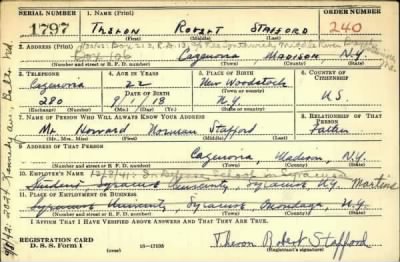 SERIAL NUMBER 1. NAME (Print) ORDER NUMBER
1797 Theron Robert Stafford 240
(First) (Middle) (Last)
2. ADDRESS (Print)
Cazenovia Madison N.Y.
(Number and street or R. F. D. number) (Town) (County) (State)
3. TELEPHONE 4. AGE IN YEARS 5. PLACE OF BIRTH 6. COUNTRY OF CITIZENSHIP
Cazenovia 22 New Woodstock
DATE OF BIRTH (Town or county)
280 9/1/18 N.Y. U.S.
(Exchange) (Number) (Mo.) (Day) (Yr.) (State or country)
7. NAME OF PERSON WHO WILL ALWAYS KNOW YOUR ADDRESS 8. RELATIONSHIP OF THAT PERSON
Mr. Howard Norman Stafford Father
(Mr., Mrs., Miss) (First) (Middle) (Last)
9. ADDRESS OF THAT PERSON
Cazenovia, Madison, N.Y.
(Number and street or R. F. D. number) (Town) (County) (State)
10. EMPLOYER'S NAME In Defense School in Syracuse
Student-Syracuse University, Syracuse, N.Y. Martins
11. PLACE OF EMPLOYMENT OR BUSINESS
Syracuse University, Syracuse Onondaga, N.Y.
(Number and street or R. F. D. number) (Town) (County) (State)
I AFFIRM THAT I HAVE VERIFIED ABOVE ANSWERS AND THAT THEY ARE TRUE.
REGISTRATION CARD
D. S. S. Form 1 Theron Robert Stafford
(over) (Registrant's signature)